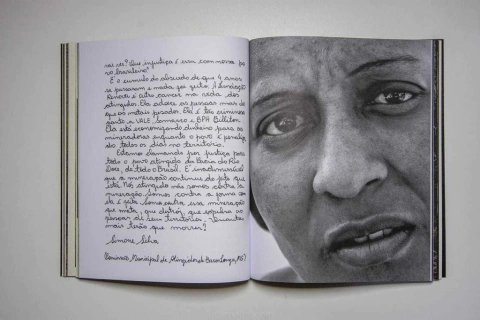 vai ser? Que injustiça é essa com nosso po
vo brasileiro?
É o cúmulo do absurdo de que 4 anos
se passaram e nada foi feito. A Fundação
Renova é outro câncer na vida dos
atingidos. Ela adoece as pessoas mais do
que os metais pesados. Ela é tão criminosa
quanto a VALE, Samarco e BHP Billiton.
Ela está economizando dinheiro para as
mineradoras enquanto o povo é penaliza
do todos os dias no território.
Estamos clamando por justiça para
todo o povo atingido da Bacia do Rio
Doce, de todo o Brasil. É inadmissível
que a mineração continue do jeito que
está. Nós atingidos não somos contra a
mineração. Somos contra a forma como
ela é feita. Somos contra essa mineração
que mata, que destrói, que expulsa as
pessoas de seus territórios. Quantos
mais terão que morrer?
Simone Silva
Comissão Municipal de Atingidos de Barra Longa, MG